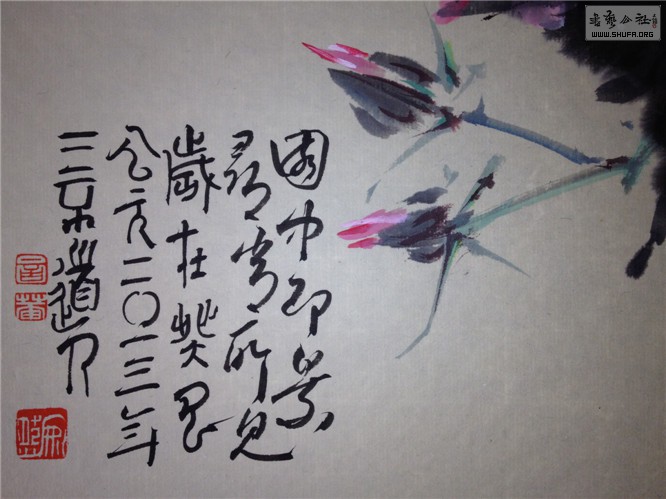 園中即景
尋常所見
歲在癸巳
公元二〇一三年
三京道
書藝公社
WWW.SHUFA.ORG